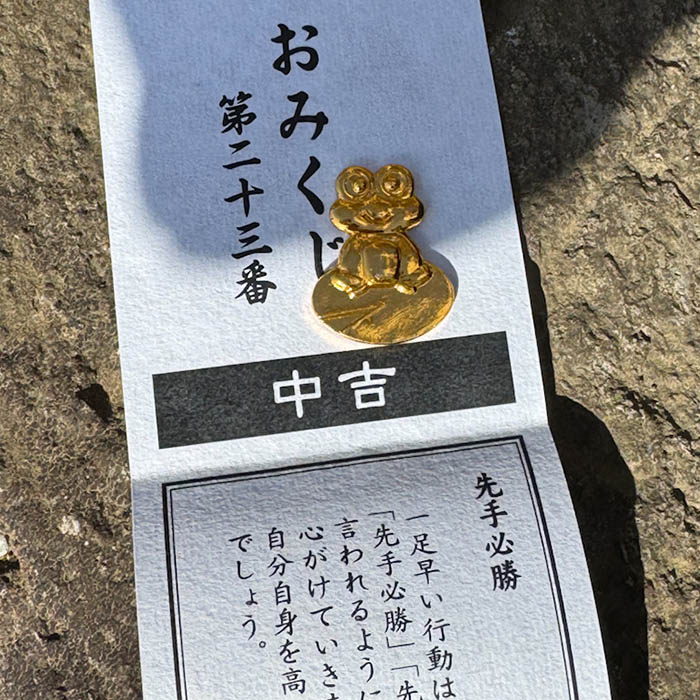 おみくじ
第二十三番
中吉
先手必勝
一足早い行動は
「先手必勝」「先
言われるように
心がけていき
自分自身を高
でしょう。